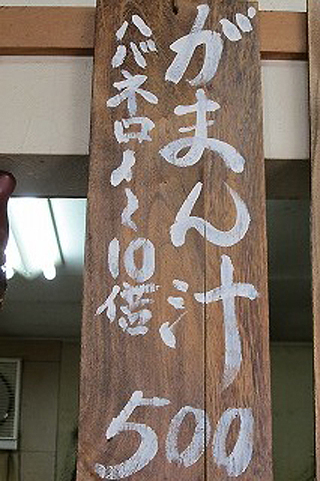 がまん汁
ハバネロイと10倍
500